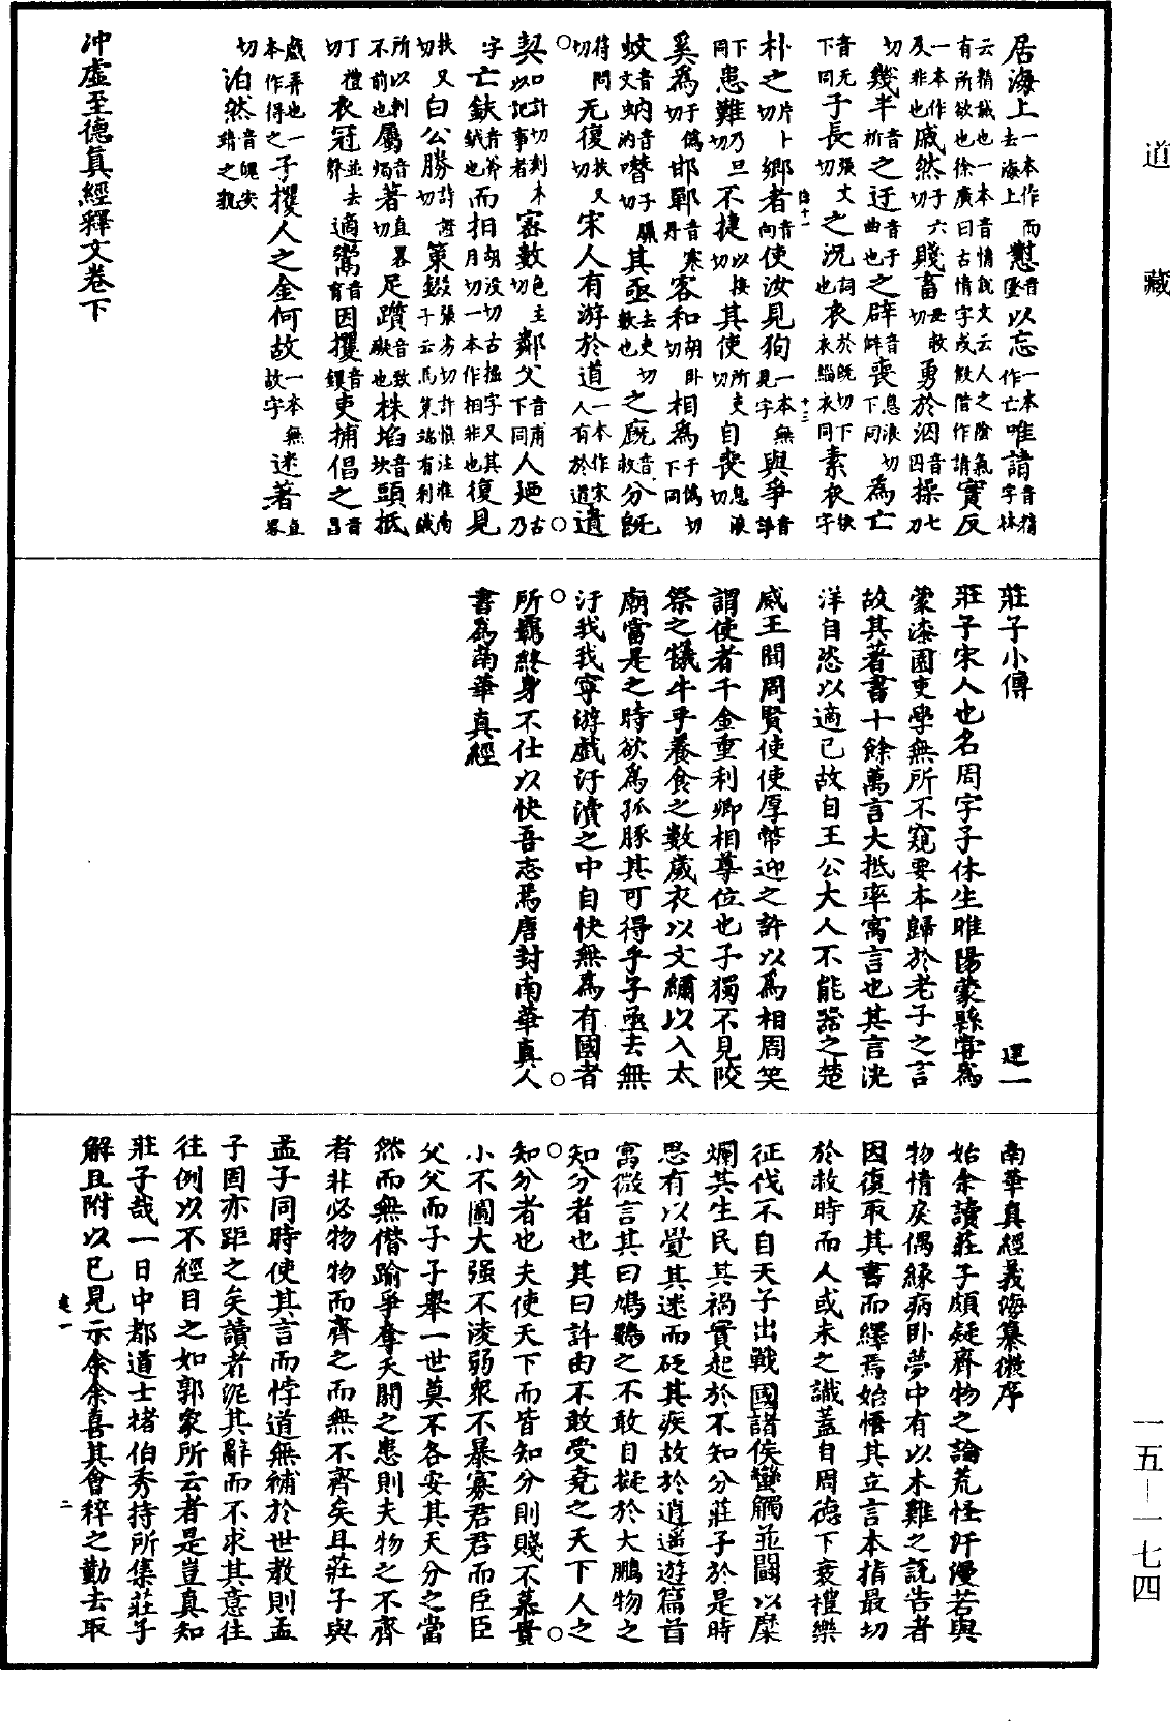 道藏
居海上一本作而去海上懟音墜以忘一本作亡唯請音精字林
云精誠也一本音情說文云人之陰氣有所欲也徐廣曰古情字或假借作請實反
一本作及非也戚然子六切賤畜丑救切勇於泅音四操七刀
切幾半音祈之迂音于曲也之辟音僻喪息浪切下同為亡
音无下同子長張丈切之況詞也衣於既切下衣緇衣同素衣字
朴之片卜切鄉者音向使汝見狗一本無見字與爭音諍
下同患難乃旦切不捷以接切其使所吏切自喪息浪切
奚為于偽切邯鄲音寒丹客和胡卧切相為于偽切下同
蚊音文蚋音汭噆子臘切其亟去吏切數也之廐音救分既
符問切无復扶又切宋人有游於道一本作宋人有於道遺
契口計切刻木以記事者密數色主切鄰父音甫下同人𢌞古乃
字亡鈇音斧鉞也而抇胡沒切古掘字又其月切一本作相非也復見
扶又切白公勝詩證切策錣張劣切許慎注淮南子云馬策端有利鍼
所以刺不前也屬音燭著直略切足躓音致礙也株埳音坎頭抵
丁禮切衣冠並去聲適鬻音育因攫音钁吏捕倡之音昌
戲弄也一本作得之子攫人之金何故一本無故字迷著直略
切泊然音魄安靖之貌
冲虛至德真經釋文卷下
莊子小傳
莊子宋人也名周字子休生睢陽蒙縣嘗為
蒙漆園吏學無所不窺要本歸於老子之言
故其著書十餘萬言大抵率寓言也其言洸
洋自恣以適己故自王公大人不能器之楚
威王聞周賢使使厚幣迎之許以為相周笑
謂使者千金重利卿相尊位也子獨不見郊
祭之犧牛乎養食之數歲衣以文繡以入太
廟當是之時欲為孤豚其可得乎子亟去無
汙我我寧游戲汙瀆之中自快無為有國者
所羈終身不仕以快吾志焉唐封南華真人
書為南華真經
南華真經義海纂微序
始余讀莊子頗疑齊物之論荒怪汗漫若與
物情戾偶緣病卧夢中有以木雞之說告者
因復取其書而繹焉始悟其立言本指最切
於救時而人或未之識蓋自周德下衰禮樂
征伐不自天子出戰國諸侯蠻觸並鬬以糜
爛其生民其禍實起於不知分莊子於是時
思有以覺其迷而砭其疾故於逍遥遊篇首
寓微言其曰鳩鷃之不敢自擬於大鵬物之
知分者也其曰許由不敢受堯之天下人之
知分者也夫使天下而皆知分則賤不慕貴
小不圖大强不淩弱衆不暴寡君君而臣臣
父父而子子舉一世莫不各安其天分之當
然而無僭踰爭奪夭閼之患則夫物之不齊
者非必物物而齊之而無不齊矣且莊子與
孟子同時使其言而悖道無補於世教則孟
子固亦距之矣讀者泥其辭而不求其意往
往例以不經目之如郭象所云者是豈真知
莊子哉一日中都道士禇伯秀持所集莊子
解且附以己見示余余喜其會稡之勤去取
一五-一七四